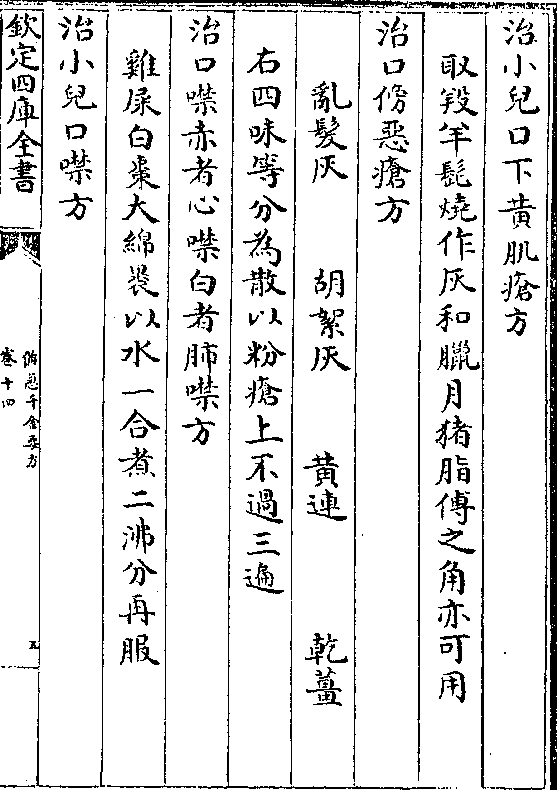 治小兒口下黄肌瘡方
取羖羊髭燒作灰和臘月猪脂傅之角亦可用
治口傍惡瘡方
亂髮灰　胡絮灰　黄連　乾薑
右四味等分為散以粉瘡上不過三遍
治口噤赤者心噤白者肺噤方
雞屎白棗大綿裹以水一合煮二沸分再服
治小兒口噤方
欽定四庫全書
備急千金要方
卷十四
五